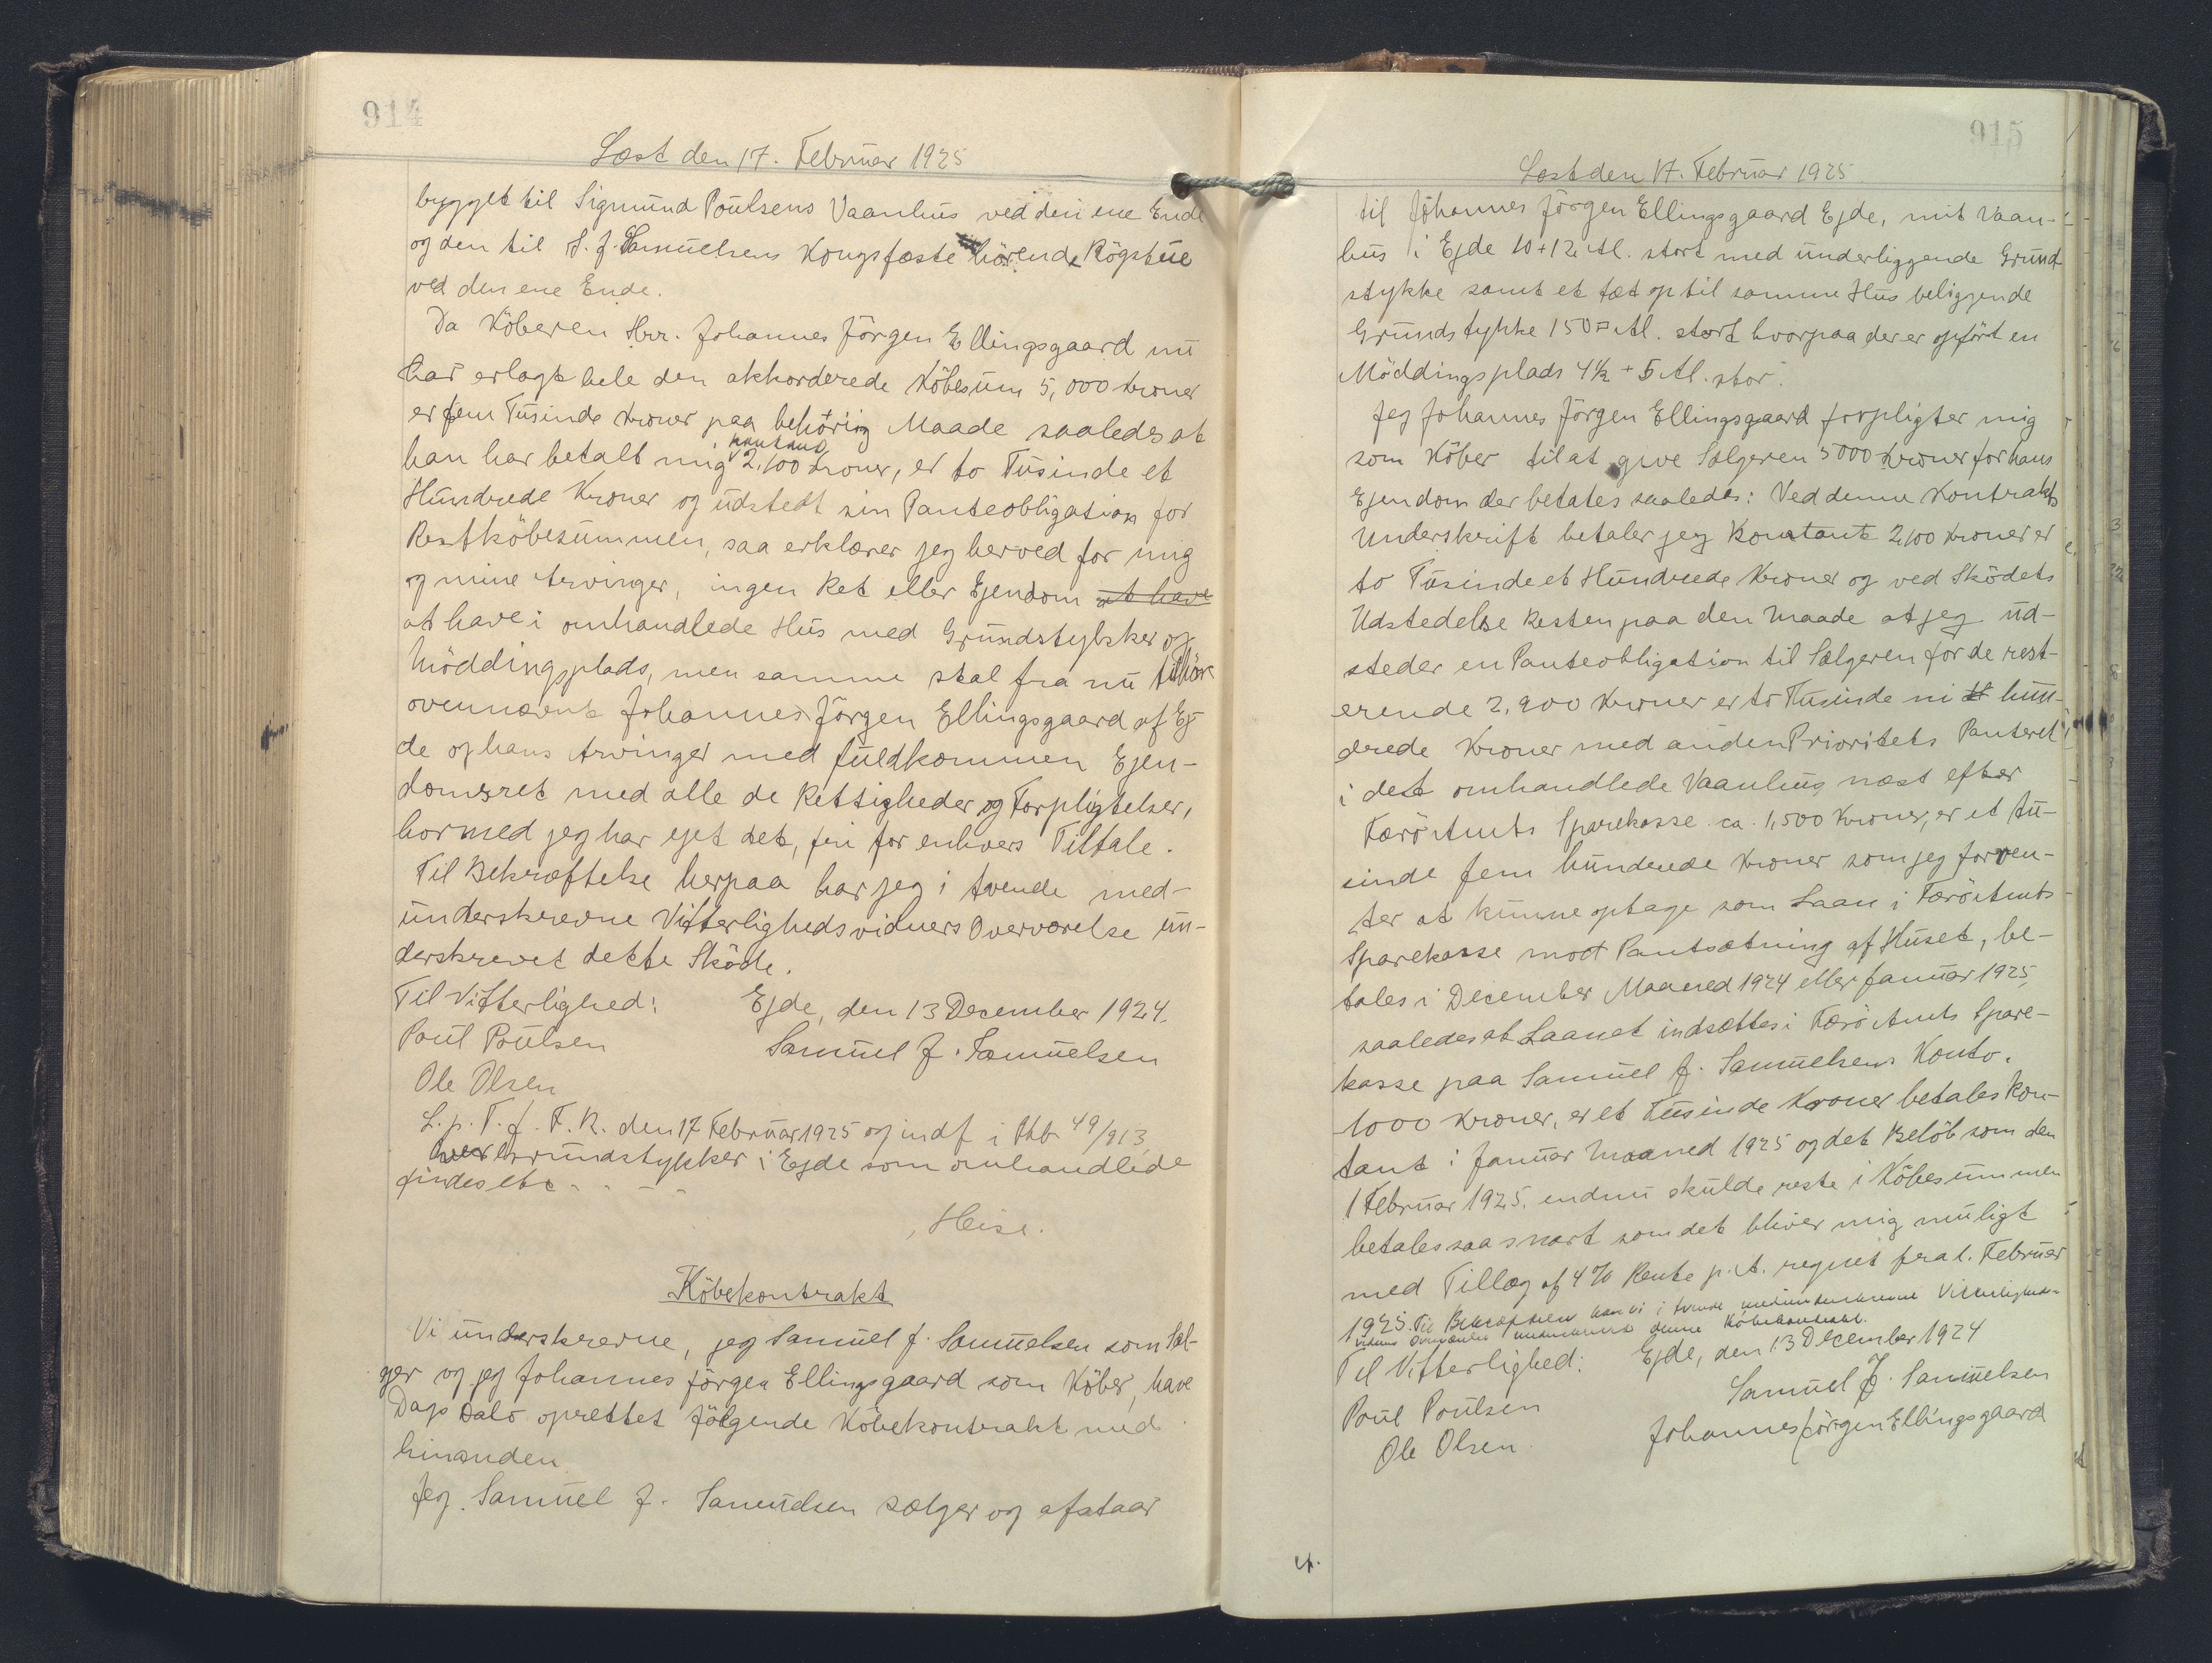 914
Læst den 17. Februar 1925
bygget til Sigmund Poulsens Vaanhus ved den ene Ende
og den til S. J. Samuelsens Kongsfæste hörende Rögstue
ved den ene Ende.
Da Köberen Hrr. Johannes Jörgen Ellingsgaard nu
har erlagt hele den akkorderede Köbesum 5,000 Kroner
er fem Tusinde Kroner paa behörig Maade saaledes at
han har betalt mig kontant 2,100 Kroner, er to Tusinde et
Hundrede Kroner og udstedt sin Panteobligation for
Restköbesummen, saa erklærer jeg herved for mig
og mine Arvinger, ingen Ret eller Ejendom at have
at have i omhandlede Hus med Grundstykker og
Möddingsplads, men samme skal fra nu tilhöre
ovennævnte Johannes Jörgen Ellingsgaard af Ej
de og hans Arvinger med fuldkommen Ejen-
domsret med alle de Rettigheder og Forpligtelser,
hormed jeg har ejet det, fri for enhvers Tiltale.
Til Bekræftelse herpaa har jeg i tvende med-
underskrevne Vitterlighedsvidners Overværelse un-
derskrevet dette Sköde.
Til Vitterlighed: Ejde, den 13 December 1924.
Poul Poulsen Samuel J. Samuelsen
Ole Olsen
L. p. T. f. F. R. den 17 Februar 1925 og indf i Pkb 49/913
Grundstykker i Ejde som omhandlede
findes etc - - - -
Heise.
Köbekontrakt
Vi underskrevne, jeg Samuel J. Samuelsen som Sæl-
ger og jeg Johannes Jörgen Ellingsgaard som Köber, have
Dags Dalo oprettet fölgende Köbekontrakt med
hinanden
Jeg Samuel J. Samuelsen sælger og afstaar
915
Læst den 17. Februar 1925
til Jöhannes Jörgen Ellingsgaard Ejde, mit Vaan-
hus i Ejde 10 + 12 Al. stort med underliggende Grund
stykke samt et tæt op til samme Hus beliggende
Grundstykke 150 □ Al. stort hvorpaa der er opfört en
Möddingsplads 4½ + 5 Al. stor.
Jeg Johannes Jörgen Ellingsgaard forpligter mig
som Köber til at give Sælgeren 5000 Kroner for hans
Ejendom der betales saaledes: Ved denne Kontrakts
Underskrift betaler jeg Kontant 2,100 Kroner er
to Tusinde et Hundrede Kroner og ved Sködets
Udstedelse Resten paa den Maade at jeg ud-
steder en Panteobligation til Sælgeren for de rest-
erende 2,900 Kroner er to Tusinde ni hun-
drede Kroner med anden Prioritets Panteret
i dest omhandlede Vaanhus næst efter
Færö Amts Sparekasse ca. 1,500 Kroner, er et tu-
sinde fem hundrede Kroner som jeg forven-
ter at kunne optage som Laan i Færö Amts
Sparekasse mod Pantsætning af Huset, be-
tales i December Maaned 1924 eller Januar 1925
saaledes at Laanet indsættes i Færö Amts Spare-
kasse paa Samuel J. Samuelsens Konto.
1000 Kroner, er et Tusinde Kroner betales kon-
tant i Januar Maaned 1925 og det Belöb som den
1 Februar 1925. endnu skulde reste i Köbesummen
betales saa snart som det bliver mig muligt
med Tillæg af 4% Rente p. A. regnet fra 1. Februar
1925. Til Bekræftelse have vi i tvende medunderskrevne Vitterligheds-
vidners Overværelse underskrevet denne Köbekontrakt.
Til Vitterlighed: Ejde, den 13 December 1924
Poul Poulsen Samuel J. Samuelsen
Ole Olsen. Johannes Jörgen Ellingsgaard